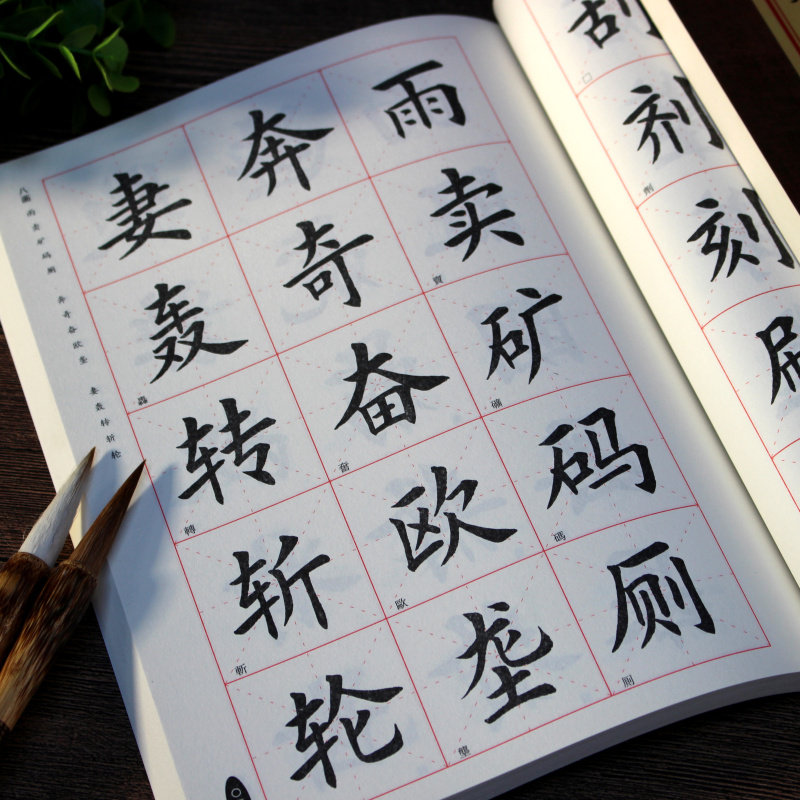 刮
剂
劑
刻
刷
雨
卖
賣
矿
礦
码
碼
厕
奔
奇
奋
奮
欧
歐
垄
壟
妻
轰
轟
转
轉
斩
斬
轮
八画 雨卖矿码厕 奔奇奋欧垄 妻轰转斩轮